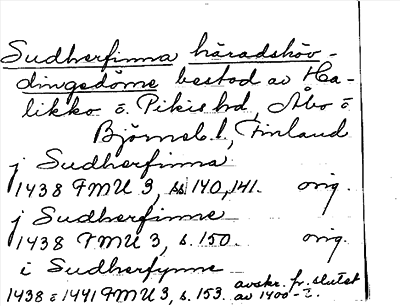 Sudherfinna häradshöv-
dingedöme bestod av Ha-
likko o. Pikie hd, Åbo o
Björneb. l, Finland
j Sudherfinna
1438 FMU 3, ss. 140, 141. orig.
j Sudherfinne
1438 FMU 3, s. 150. orig.
i Sudherfynne
1438 o 1441 FMU 3, s. 153. avskr. fr. slutet
av 1400-t.